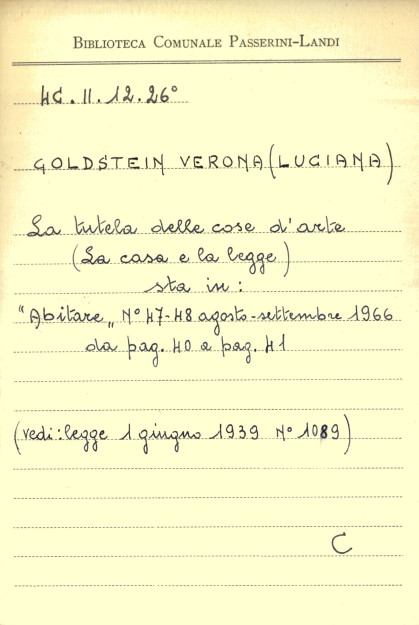 BIBLIOTECA COMUNALE PASSERINI-LANDI
4C.II.12.26°
GOLDSTEIN VERONA (LUCIANA)
La tutela delle cose d'arte
(La casa e la legge)
sta in:
"Abitare„ N° 47-48 agosto-settembre 1966
da pag. 40 a pag. 41
(vedi: legge 1 giugno 1939 N° 1089)
C